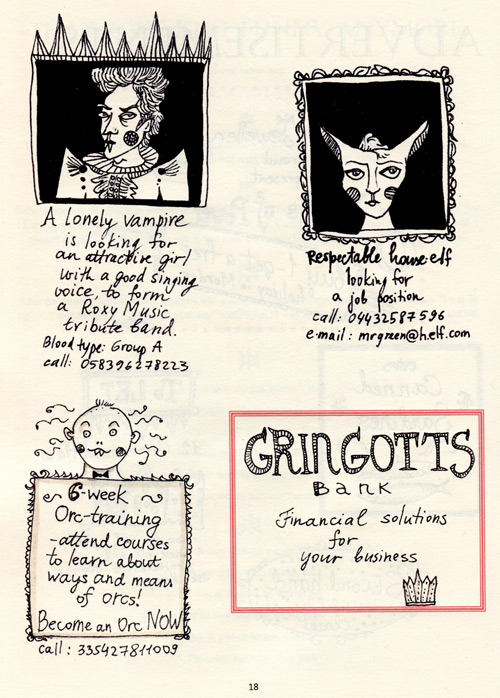 A lonely vampire
is looking for
an attractive girl
with a good singing
voice, to form
a Roxy Music
tribute band.
Blood type: Group A
call: 058396278223
Respectable house elf
looking for
a job position
call: 04432587596
e-mail: mrgreen@h.elf.com
6-week
Orc-training
-attend courses
to learn about
ways and means
of orcs!
Become an Orc NOW
call: 335427811009
GRINGOTTS
Bank
Financial solutions
for
your business
18